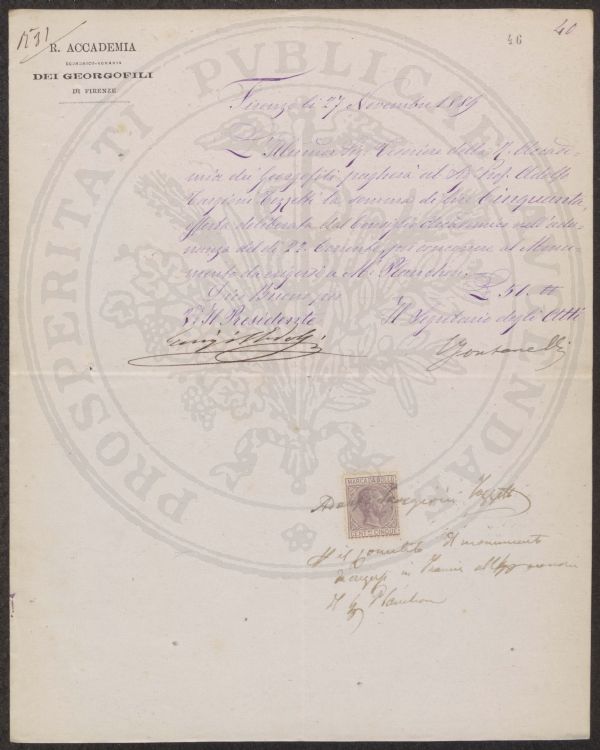 1531
40
46
R. ACCADEMIA
ECONOMICO-AGRARIA
DEI GEORGOFILI
DI FIRENZE
PROSPERITATI PUBLICAE AUGENDAE
Firenze li 27 Novembre 1889
L'Illmo Sig. Tesoriere della R. Accade-
mia dei Georgofili pagherà al Sig. Prof. Adolfo
Targioni Tozzetti la somma di Lire Cinquanta,
offerta deliberata dal Consiglio Accademico nell'adu-
nanza del dì 22 Corrente per concorrere al Monu-
mento da erigersi a Mr. Planchon.
Dico Buono per £ 50.
Il Presidente Il Segretario degli Atti
MARCA DA BOLLO
CENT. MI CINQUE
Adolfo Targioni Tozzetti
il Comitato monumento
da erigersi in
Planchon